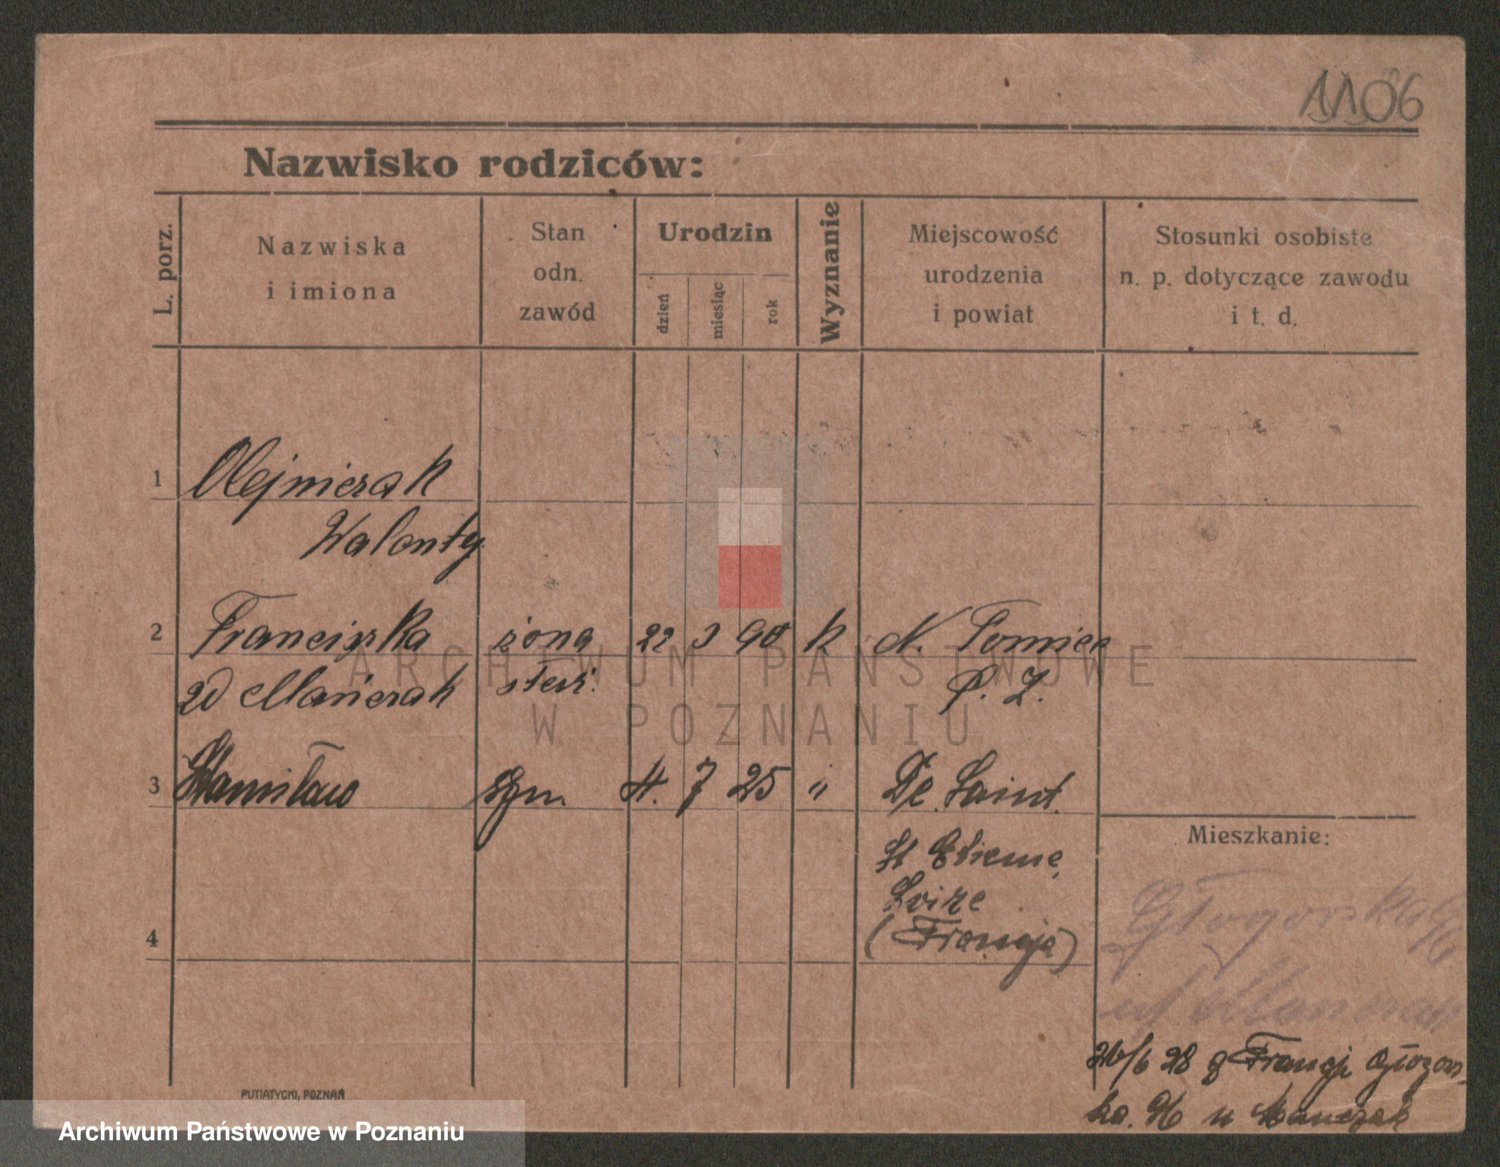 1106
Nazwisko rodziców:
L. porz.
Nazwiska
i imiona
Stan
odn.
zawód
Urodzin
dzień
miesiąc
rok
Wyznanie
Miejscowość
urodzenia
i powiat
Stosunki osobiste
n. p. dotyczące zawodu
i t. d.
1 Olejniczak
Walenty
2 Franciszka żona 22 3 90 k N. Tomice
zd Mańczak
P. Z.
3 Stanisław syn. 4. 7 25 " De Saint.
St Etienne,
Loire
(Francja)
4
Mieszkanie:
Głogowska 96
u Mańczak
26/6 28 z Francji Głogow-
ska. 96 u Mańczak
PUTIATYCKI, POZNAŃ
ARCHIWUM PAŃSTWOWE
W POZNANIU
Archiwum Państwowe w Poznaniu